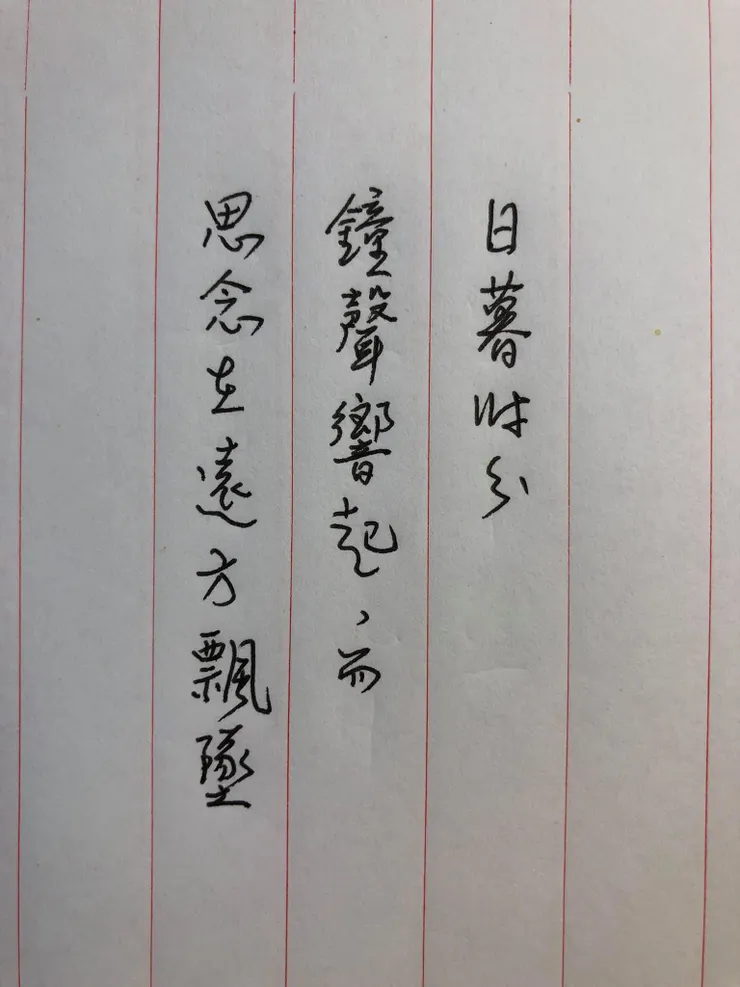 日暮时分
鐘聲響起，而
思念在遠方飄墜